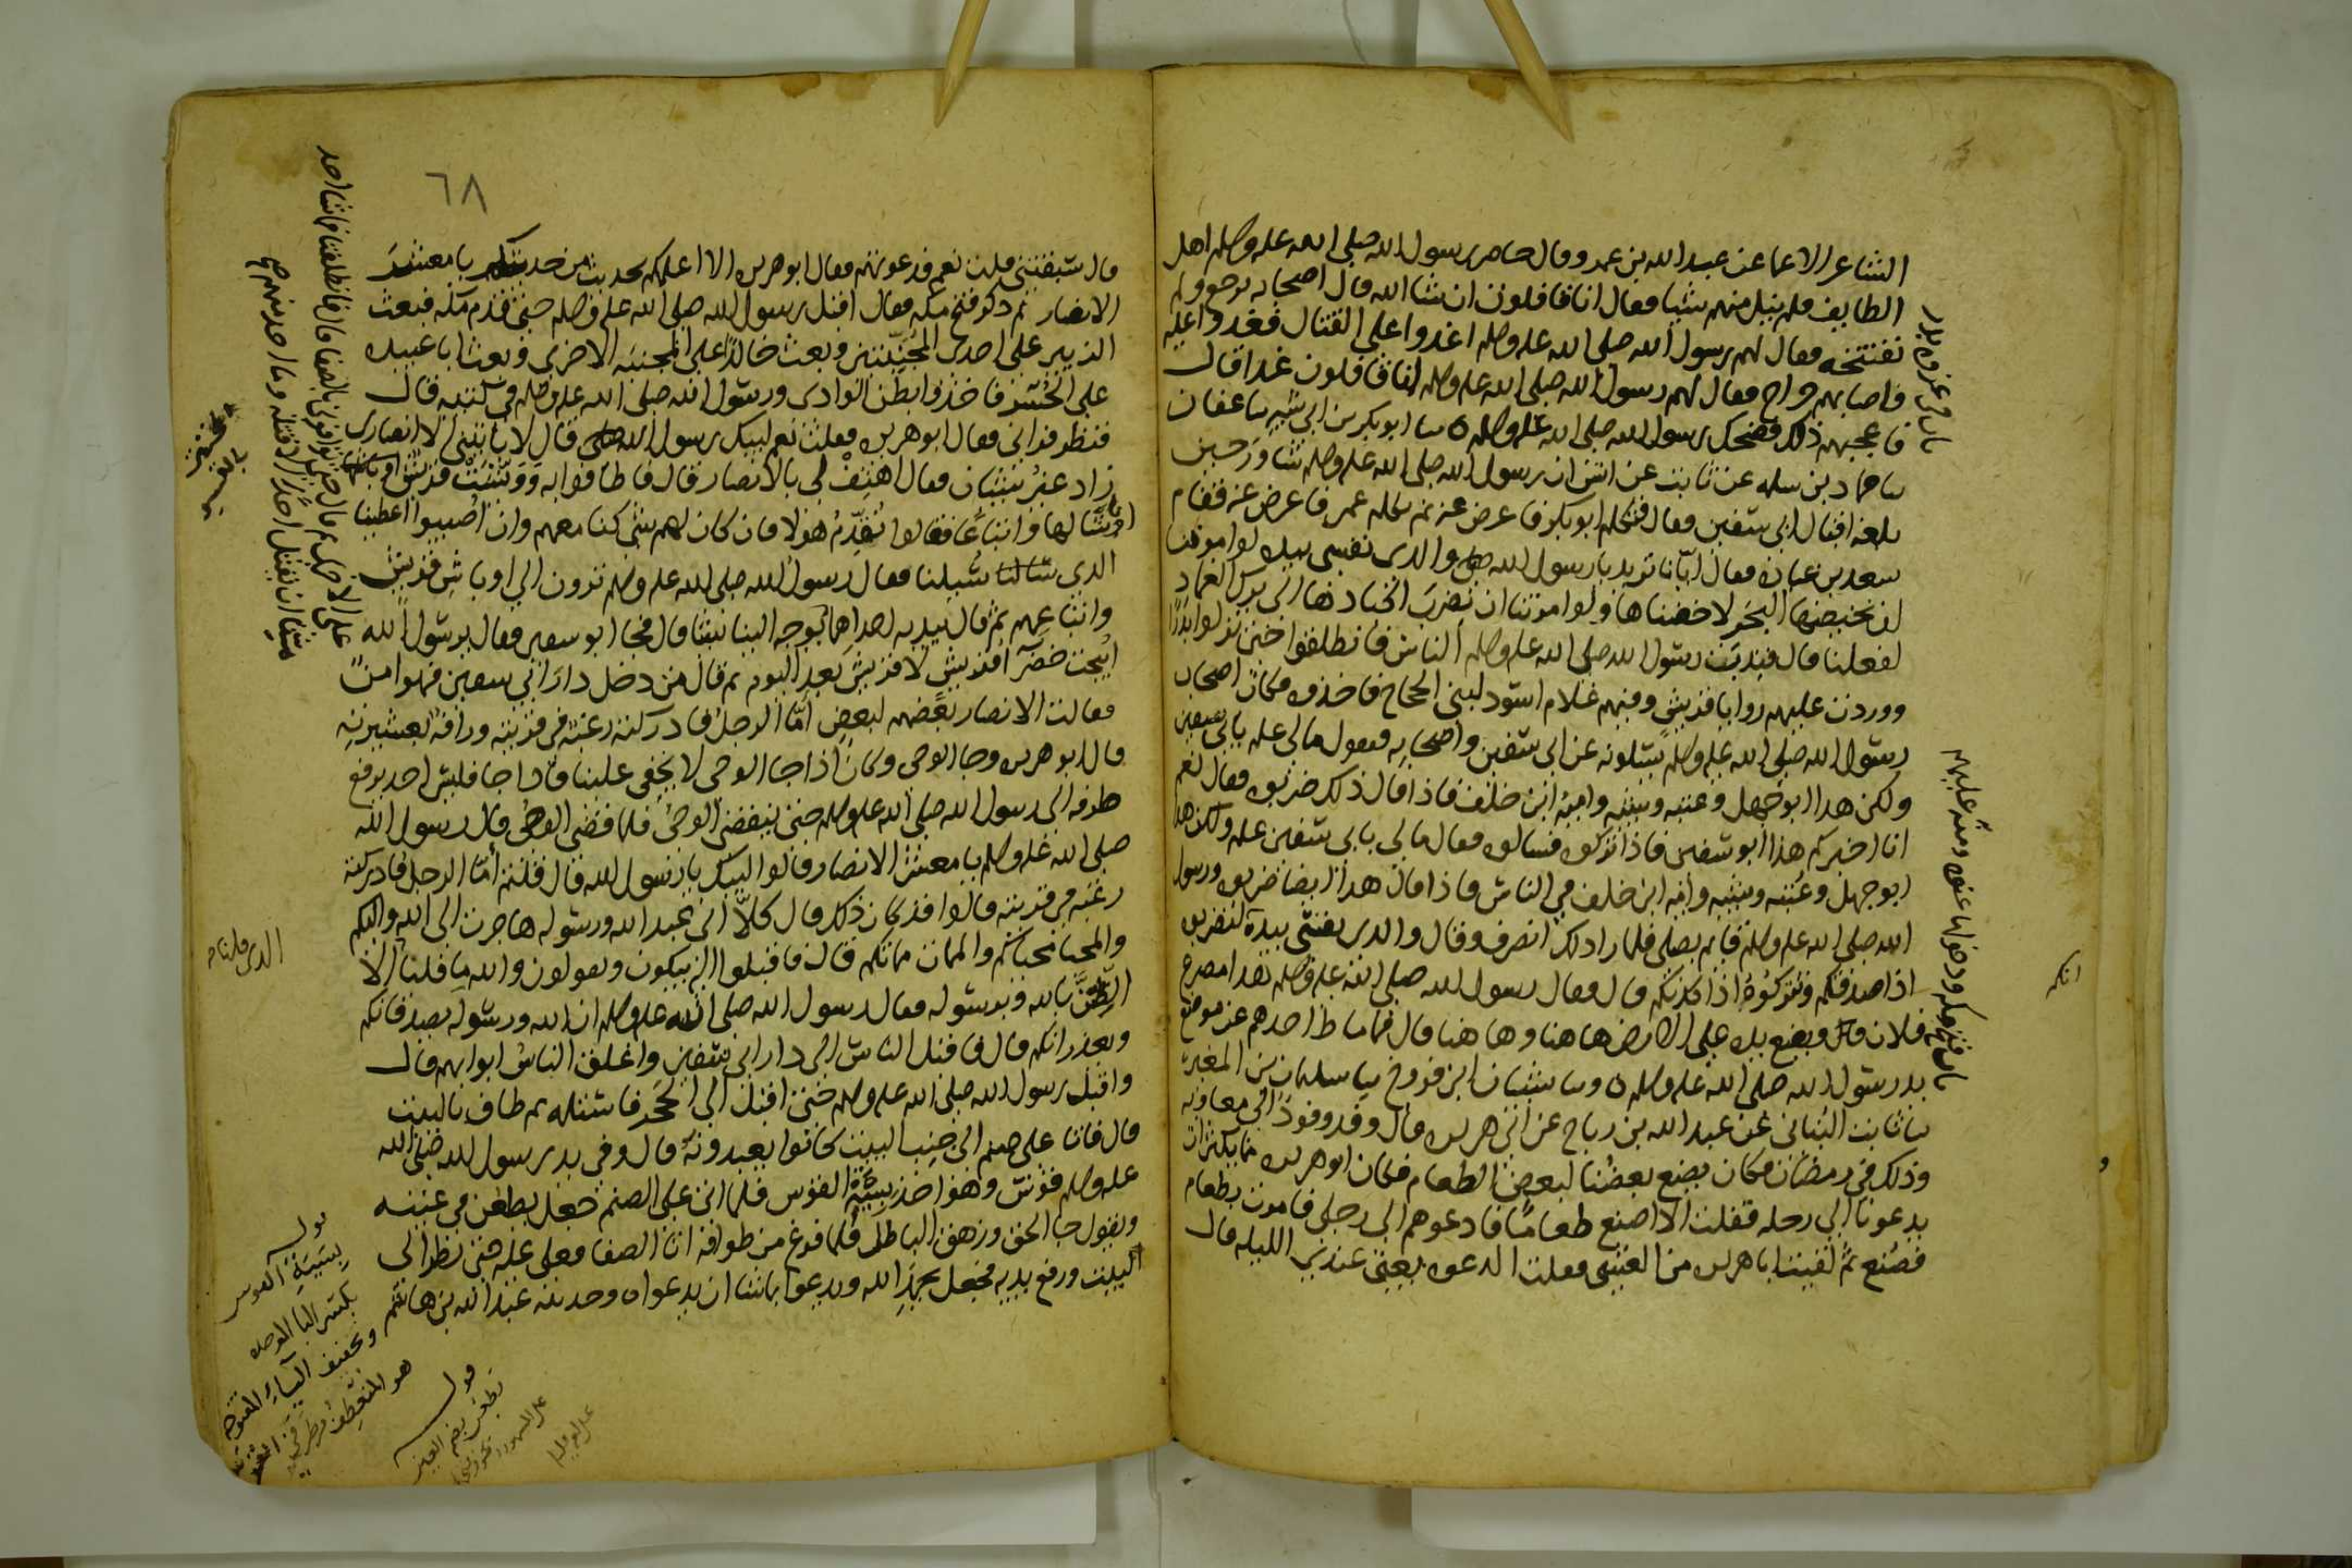 الشاعر الاعما عن عبد الله بن عمرو قال حاصر رسول الله صلى الله عليه وسلم اهل
الطايف فلم ينل منهم شيا فقال انا قافلون ان شا الله قال اصحابه نرجع ولم
نفتتحه فقال لهم رسول الله صلى الله عليه وسلم اغدوا على القتال فغدوا عليه
فاصابهم جراح فقال لهم رسول الله صلى الله عليه وسلم انا قافلون غدا قال
فاعجبهم ذلك فضحك رسول الله صلى الله عليه وسلم ٥ ثنا ابو بكر بن ابي شيبه ثنا عفان
ثنا حماد بن سلمه عن ثابت عن انس ان رسول الله صلى الله عليه وسلم شاور حين
بلغه اقبال ابي سفين قال فتكلم ابو بكر فاعرض عنه ثم تكلم عمر فاعرض عنه فقام
سعد بن عباده فقال ايانا تريد يا رسول الله والذي نفسي بيده لو امرتنا
ان نخيضها البحر لاخضناها ولو امرتنا ان نضرب اكبادها الى برك الغماد
لفعلنا قال فندب رسول الله صلى الله عليه وسلم الناس فانطلقوا حتى نزلوا بدرا
ووردت عليهم روايا قريش وفيهم غلام اسود لبني الحجاج فاخذوه فكان اصحاب
رسول الله صلى الله عليه وسلم يسئلونه عن ابي سفين واصحابه فيقول مالي علم بابي سفين
ولكن هذا ابو جهل وعتبه وشيبه واميه ابن خلف فاذا قال ذلك ضربوه فقال نعم
انا اخبركم هذا ابو سفين فاذا تركوه فسالوه فقال مالي بابي سفين علم ولكن هذا
ابو جهل وعتبه وشيبه واميه ابن خلف في الناس فاذا قال هذا ايضا ضربوه ورسول
الله صلى الله عليه وسلم قايم يصلي فلما راى ذلك انصرف وقال والذي نفسي بيده لتضربوه
اذا صدقكم وتتركوه اذا كذبكم قال فقال رسول الله صلى الله عليه وسلم هذا مصرع
فلان قال ويضع يده على الارض هاهنا وهاهنا قال فما ماط احدهم عن موضع
يد رسول الله صلى الله عليه وسلم ٥ وثنا شيبان ابن فروخ ثنا سليمان بن المغيره
ثنا ثابت البناني عن عبد الله بن رباح عن ابي هريره قال وفدت وفود الى معاويه
وذلك في رمضان فكان يصنع بعضنا لبعض الطعام فكان ابو هريره مما يكثر ان
يدعونا الى رحله فقلت الا اصنع طعاما فادعوهم الى رحلي فامرت بطعام
فصنع ثم لقيت ابا هريره من العشي فقلت الدعوه عندي الليله قال
باب في غزوه بدر
باب فتح مكه ودخولها عنوه ومنه عليهم
انكم
٦٨
قال سبقتني قلت نعم فدعوتهم فقال ابو هريره الا اعلمكم بحديث من حديثكم يا معشر
الانصار ثم ذكر فتح مكه فقال اقبل رسول الله صلى الله عليه وسلم حتى قدم مكه فبعث
الزبير على احدى المجنبتين وبعث خالدا على المجنبه الاخرى وبعث ابا عبيده
على الحسر فاخذوا بطن الوادي ورسول الله صلى الله عليه وسلم في كتيبه قال
فنظر فراني فقال ابو هريره فقلت نعم لبيك رسول الله قال لا ياتيني الا انصاري
زاد غير شيبان فقال اهتف لي بالانصار قال فاطافوا به ووبشت قريش
اوباشا لها واتباعا فقالوا نقدم هولا فان كان لهم شي كنا معهم وان اصيبوا اعطينا
الذي سالنا سئلنا فقال رسول الله صلى الله عليه وسلم ترون الى اوباش قريش
واتباعهم ثم قال بيديه
ابيحت خضرا قريش لا قريش بعد اليوم ثم قال من دخل دار ابي سفين فهو امن
فقالت الانصار بعضهم لبعض اما الرجل فادركته رغبه في قريته ورافه بعشيرته
قال ابو هريره وجا الوحي وكان اذا جا الوحي لا يخفى علينا فاذا جا فليس احد يرفع
طرفه الى رسول الله صلى الله عليه وسلم حتى ينقضي الوحي فلما قضي الوحي قال رسول الله
صلى الله عليه وسلم يا معشر الانصار قالوا لبيك يا رسول الله قال قلتم اما الرجل فادركته
رغبه في قريته قالوا قد كان ذلك قال كلا اني عبد الله ورسوله هاجرت الى الله واليكم
والمحيا محياكم والممات مماتكم قال فاقبلوا اليه يبكون ويقولون والله ما قلنا الا
الضن بالله وبرسوله فقال رسول الله صلى الله عليه وسلم ان الله ورسوله يصدقانكم
ويعذرانكم قال فاقبل الناس الى دار ابي سفين واغلق الناس ابوابهم قال
واقبل رسول الله صلى الله عليه وسلم حتى اقبل الى الحجر فاستلمه ثم طاف بالبيت
قال فاتا على صنم الى جنب البيت كانوا يعبدونه قال وفي يد رسول الله صلى الله
عليه وسلم قوس وهو اخذ بسية القوس فلما اتى على الصنم جعل يطعن في عينيه
ويقول جا الحق وزهق الباطل فلما فرغ من طوافه اتا الصفا فعلى عليه حتى نظر الى
البيت ورفع يديه فجعل يحمد الله ويدعوا بما شا ان يدعوا ٥ وحدثنيه عبد الله بن هاشم
الذي قلنا
قوله
بسية القوس
بكسر البا الموحده
وتخفيف الياء المفتوحه
هو المنعطف من طرفي القوس
قوله
يطعن بضم العين
على المشهور